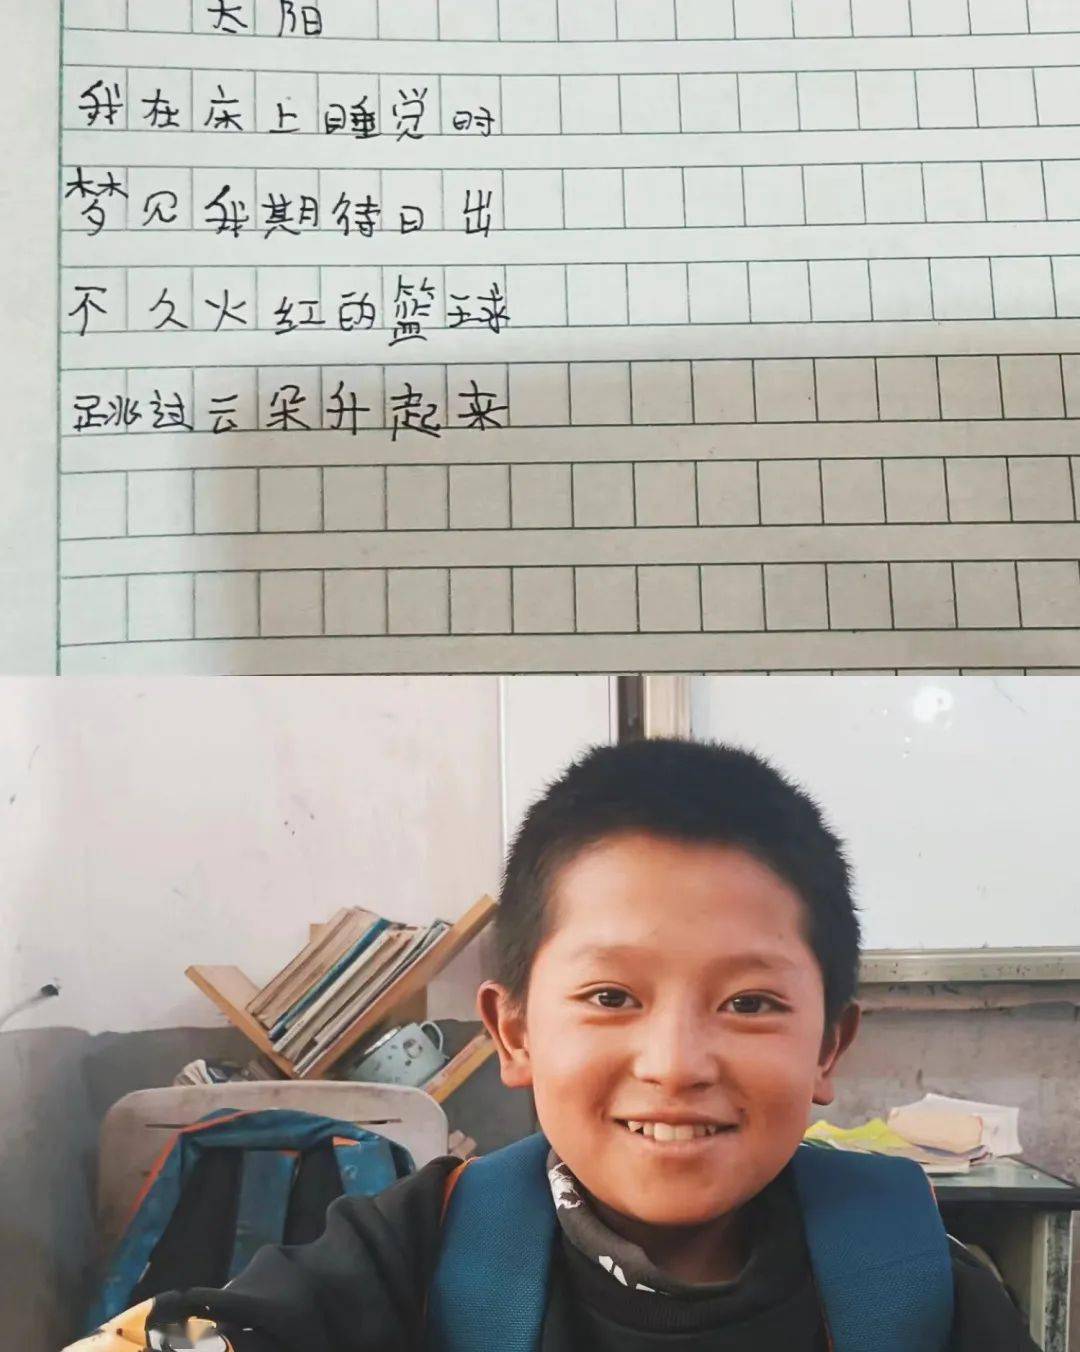 太阳
我在床上睡觉时
梦见我期待日出
不久火红的篮球
跳过云朵升起来